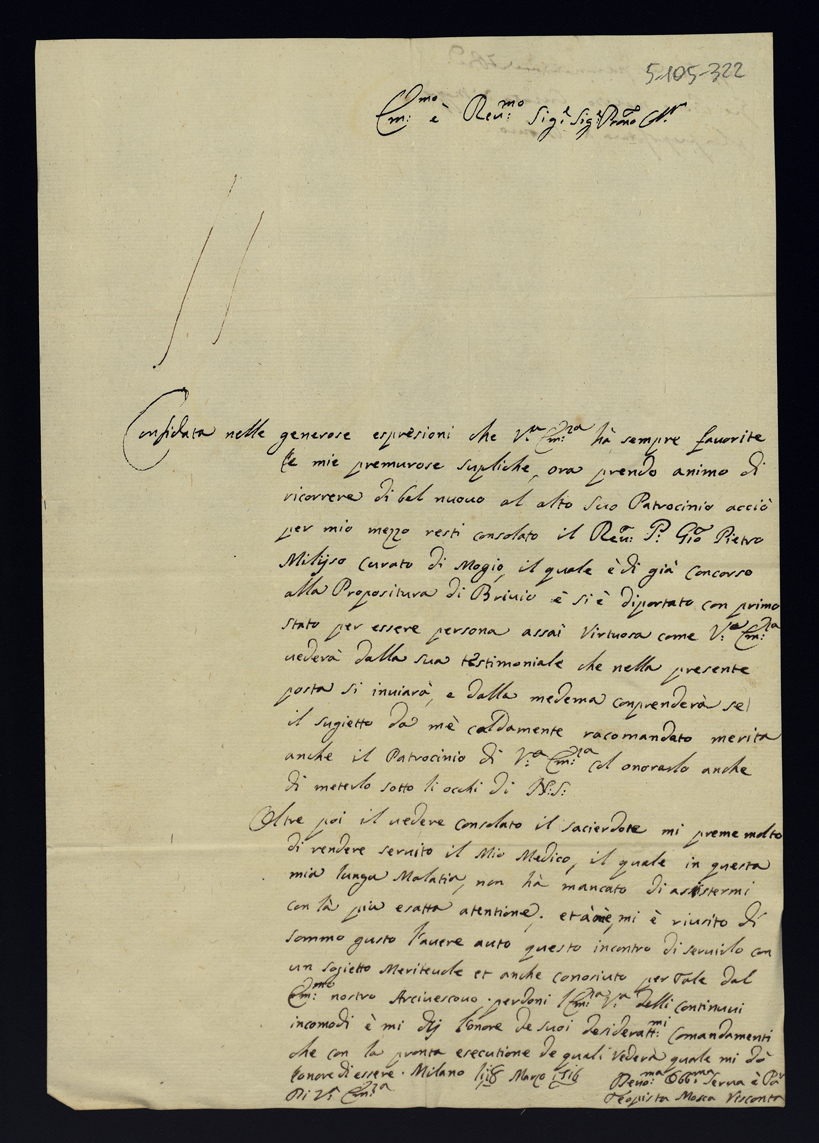 5-105-322
Em:mo è Reu:mo Sig:r Sig:r Prōne
Confidata nelle generose espresioni che V:ra Em:za hà sempre favorite
le mie premurose supliche, ora prendo animo di
ricorrere di bel nuouo al alto suo Patrocinio acciò
per mio mezzo resti consolato il Reu: P: Gio Pietro
curato di Mogio, il quale è di già concorso
alla Propositura di Briuio è si è diportato con primo
stato per essere persona assai virtuosa come V:ra Em:za
uederà dalla sua testimoniale che nella presente
posta si inuiarà, e dalla medema conprenderà se
il sugietto da mè caldamente racomandato merita
anche il Patrocinio di V:ra Em:za col onorarlo anche
di meterlo sotto li occhi di N:S:
Oltre poi il uedere consolato il sacierdote mi preme molto
di rendere seruito il Mio Medico, il quale in questa
mia lunga Malatia, non hà mancato di assistermi
con là piu esatta atentione, et à mè, mi è riusito di
sommo gusto l'auere auto questo incontro di seruirlo con
un sogietto Meriteuole et anche conosiuto per tale dal
Em:mo nostro Arciuescouo. perdoni l'Em:za V:ra delli continui
incomodi è mi dij l'onore de suoi desiderati:mi Comandamenti
che con la pronta esecutione de quali Vederà quale mi dò
l'onore di essere. Milano li 18 Marzo 1716
Di V:ra Em:za
Deuo:ma Obb:ma Serua è
Teopista Mosca Visconta